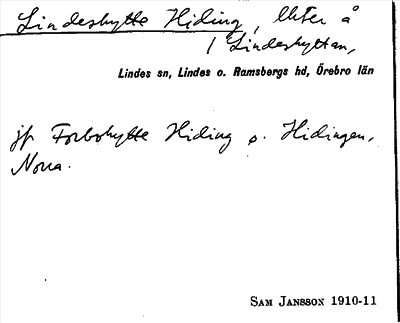 Lindeshytte Hiding, likter å
/ Lindeshyttan,
Lindes sn, Lindes o. Ramsbergs hd, Örebro län
jfr Forbohytte Hiding o. Hidingen,
Norra.
SAM JANSSON 1910-11